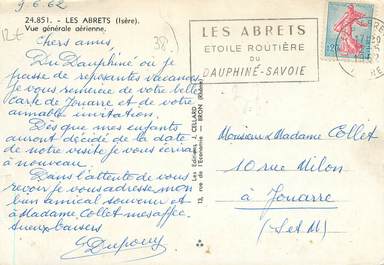 9_6_62
24.851. - LES ABRETS (Isère).
Vue générale aérienne.
12t
38
Chers amis,
Du Dauphiné où je
passe de reposantes vacances
je vous remercie de votre belle
carte de Jouarre et de votre
aimable invitation.
Dès que mes enfants
auront décidé de la date
de notre visite je vous écrirai
à nouveau.
Dans l'attente de vous
revoir je vous adresse mon
bon amical souvenir et
à Madame Collet mes affec
tueux baisers
Dupouy
Les Editions J. CELLARD
13, rue de l'Economie - BRON (Rhône)
LES ABRETS
ETOILE ROUTIÈRE
DU
DAUPHINÉ-SAVOIE
Monsieur & Madame Collet
10 rue Milon
à Jouarre
(S et M)